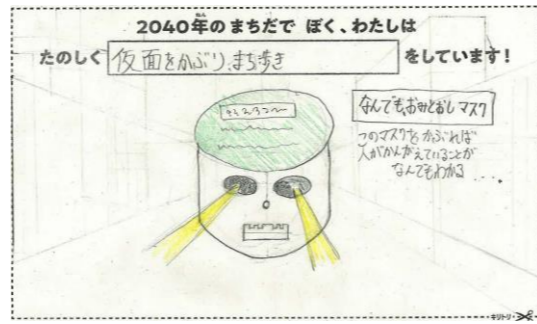 2040年のまちだで ぼく、わたしは
たのしく 仮面をかぶり、まち歩き をしています!
なんでも、おみとおしマスク
このマスクをかぶれば
人がかんがえていることが
なんでもわかる ....
キリトリ